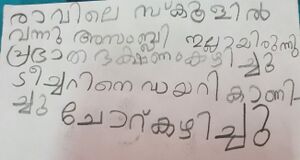 രാവിലെ സ്കൂളിൽ
വന്നു അസംബ്ലി ഇല്ലായിരുന്നു
പ്രഭാത ഭക്ഷണം കഴിച്ചു
ടീച്ചറിനെ ഡയറി കാണി
ച്ചു ചോറ് കഴിച്ചു